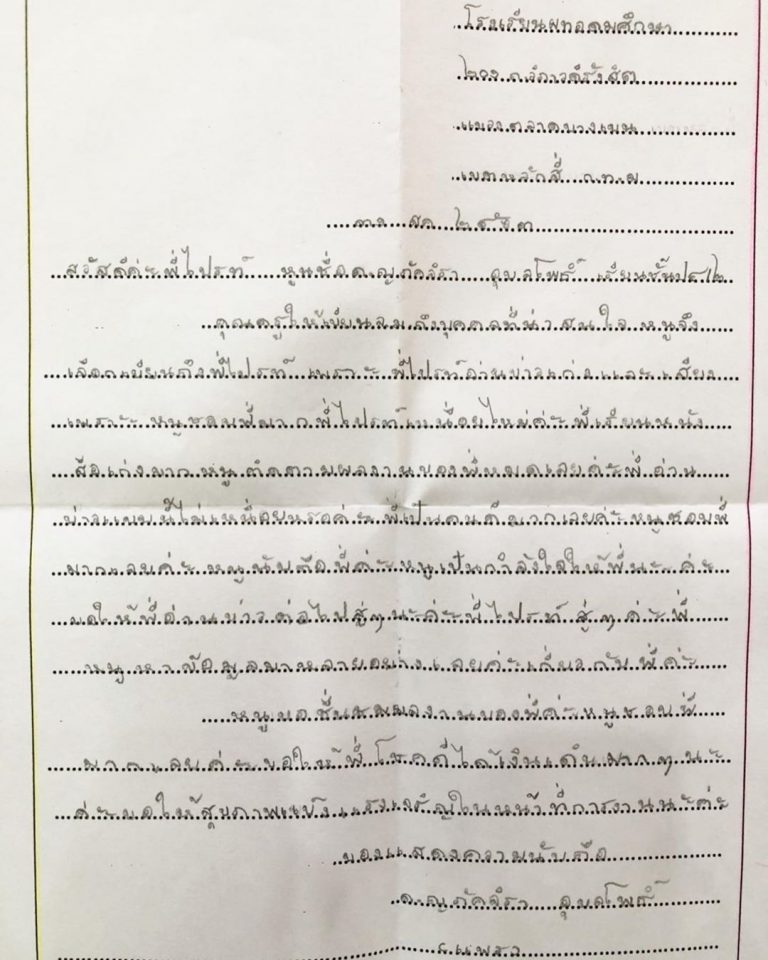 โรงเรียนพหอดมศึกษา
๒๐๑ ถ.วิภาวดีรังสิต
แขวงตลาดบางเขน
เขตหลักสี่ ก.ท.ม
สค
สวัสดีค่ะพี่ไปรท์ หนูชื่อด.ญภัคจิรา อุบลโพธิ์ เรียนชั้นป๕/๒
คุณครูให้เขียนจมถึงบุคคลที่น่าสนใจ หนูจึง
เลือกเขียนถึงพี่ไปรท์ เพราะ พี่ไปรท์อ่านข่าวเก่งและเสียง
เพราะ หนูชอบพี่มาก พี่ไปรท์เหนื่อยไหม่ค่ะ พี่เรียนหนัง
สือเก่งมาก หนูติดตามผลงานของพี่หมดเลยค่ะพี่อ่าน
ข่าวแบบนี้ไม่เหนื่อยหรอค่ะ พี่เป็นคนดีมากเลยค่ะ หนูชอบพี่
มากเลยค่ะ หนูนับถือพี่ค่ะ หนูเป็นกำลังใจให้พี่นะ ค่ะ
ขอให้พี่อ่านข่าวต่อไปสู่ๆนะค่ะพี่ไปรท์ สู่ๆ ค่ะพี่
หนูหาข้อมูลมาหลายอย่างเลยค่ะเกี่ยวกับ พี่ค่ะ
หนูขอชื่นชมผลงานของพี่ค่ะหนูชอบพี่
มากเลยค่ะ ขอให้พี่โชคดีได้เงินเดินมากๆนะ
ค่ะขอให้สุขภาพแข็งแรงเจริญในหน้าที่การงานนะค่ะ
ของแสดงความนับถือ
ด.ญภัคจิรา อุบลโพธิ์